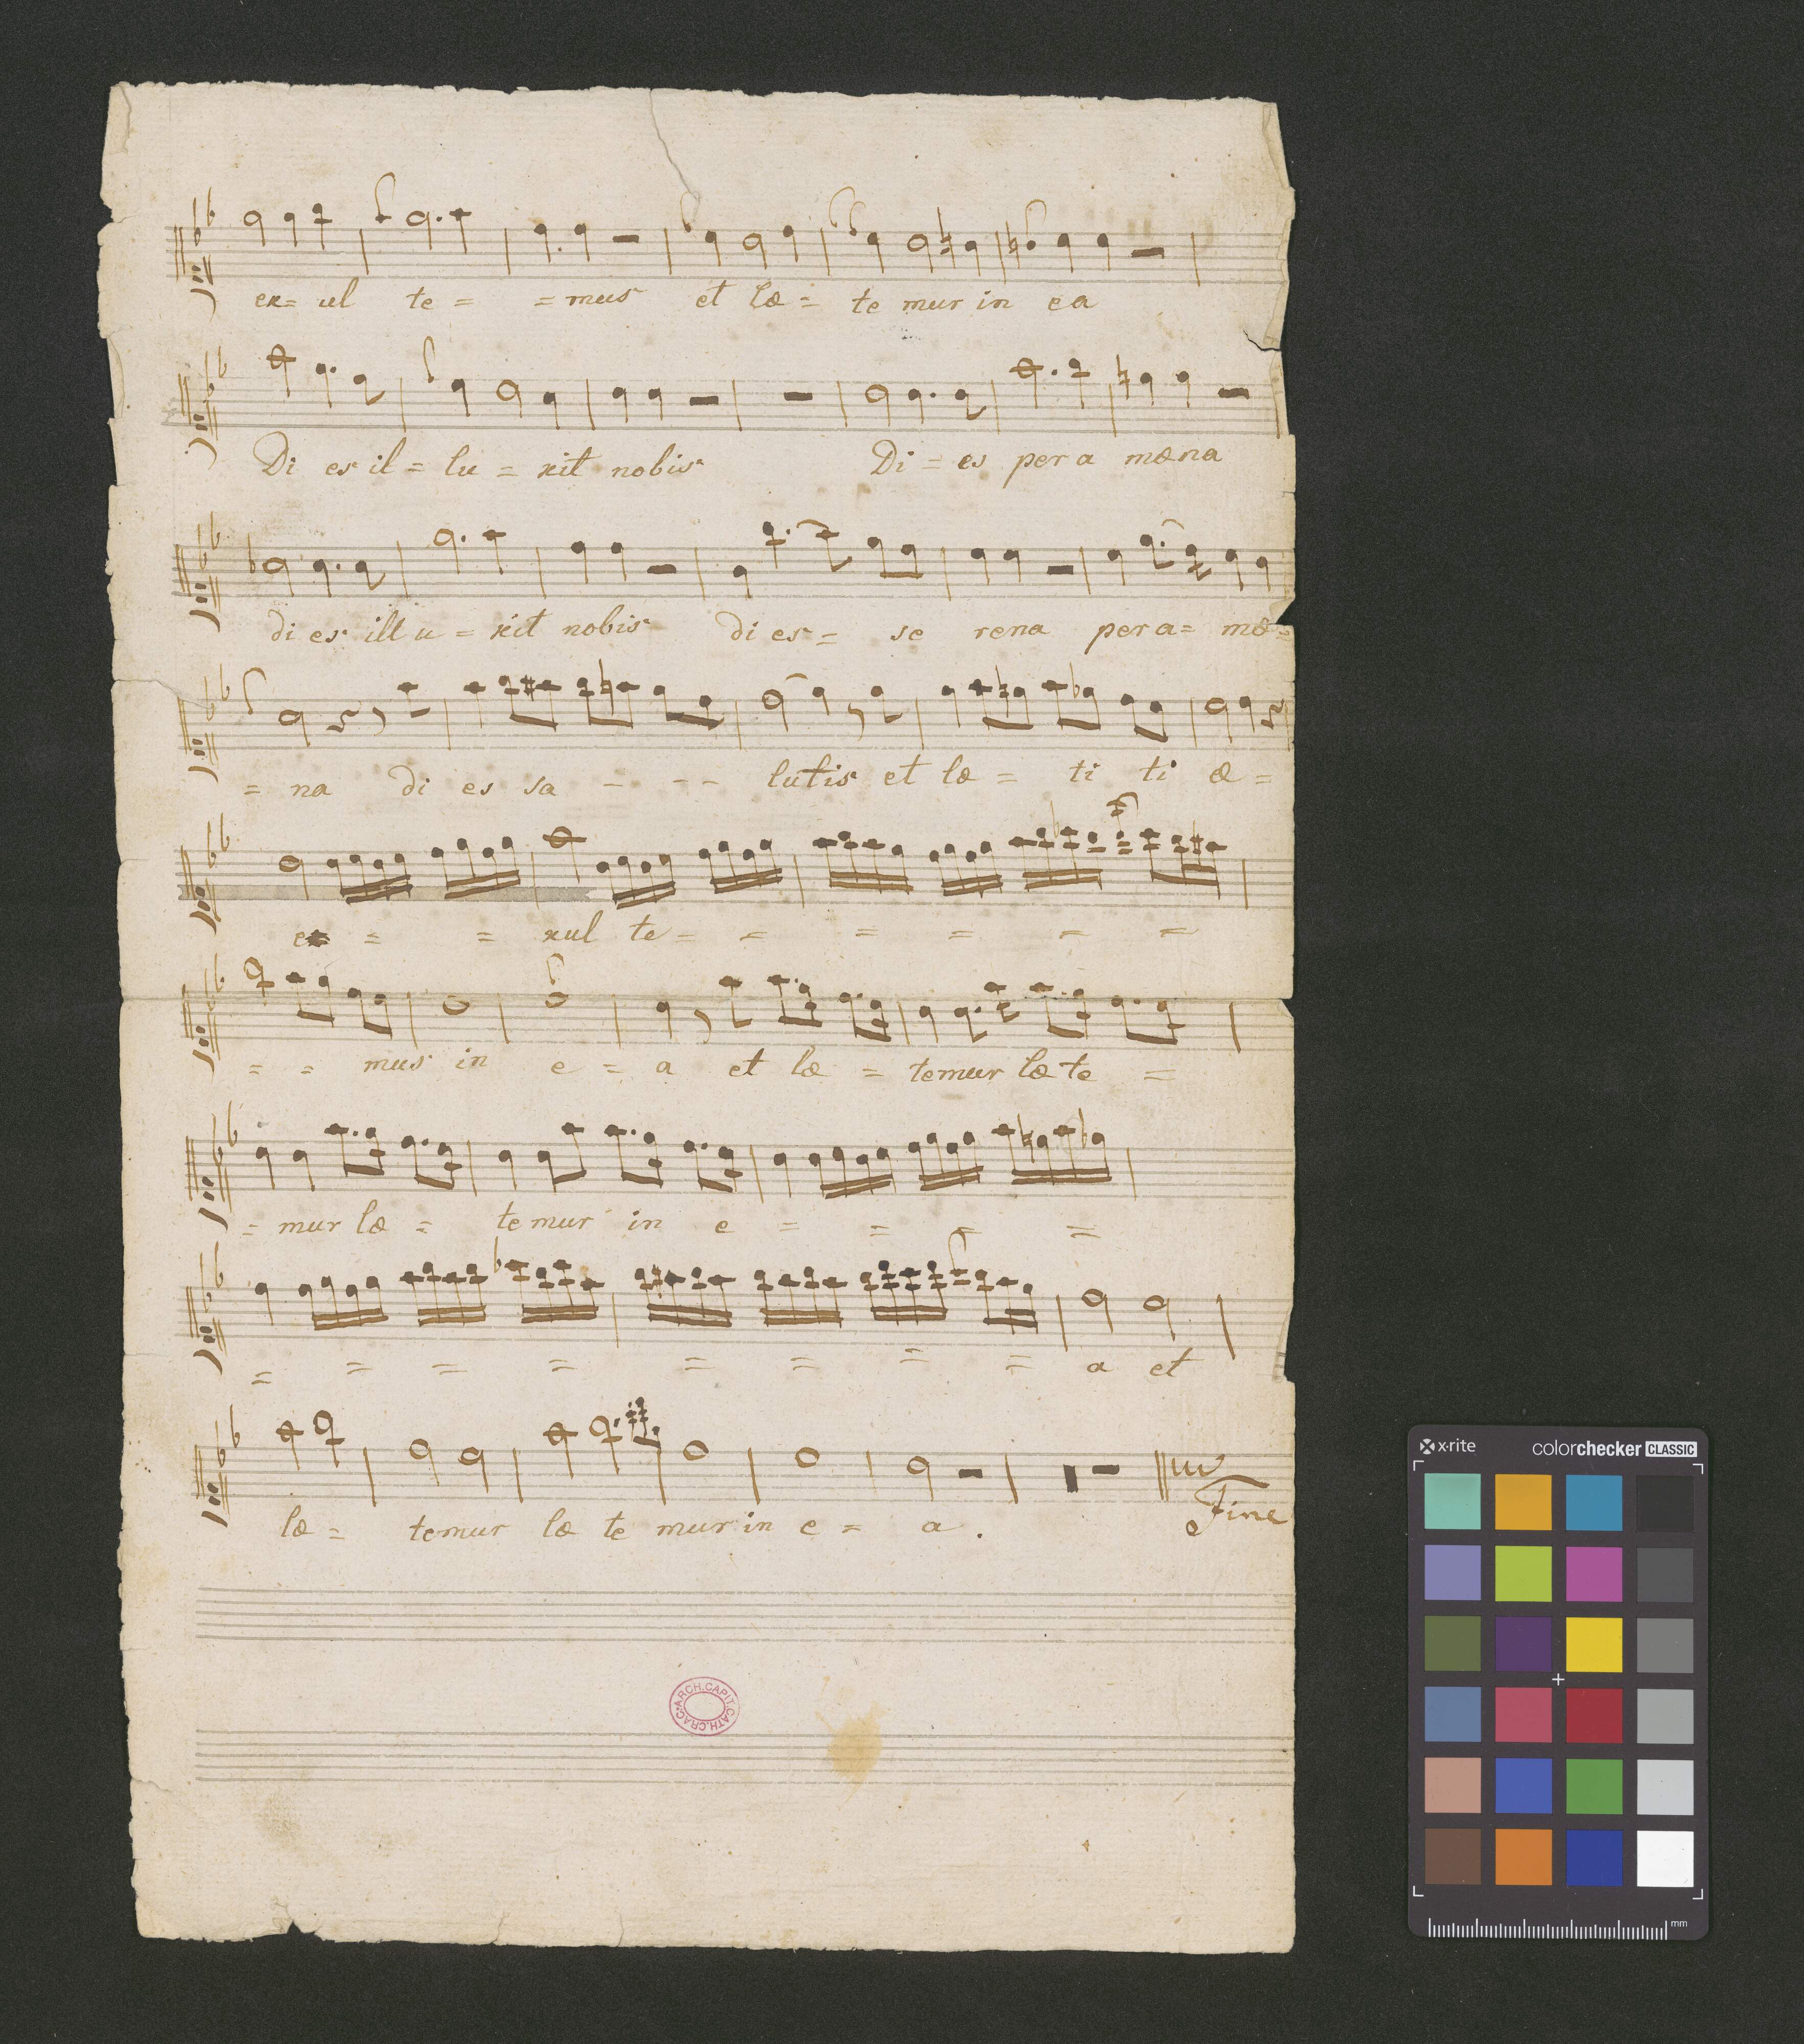 ex= ul te = = mus et læ = te mur in ea
Di es il = lu = xit nobis Di = es per a mœna
di es ill u = xit nobis di es = se rena per a = mœ =
= na di es sa - - - lutis et læ = ti ti æ =
ex = = xul te = = = = = =
= = mus in e = a et læ = temur læ te =
= mur læ = te mur in e = = = =
= = = = = = = = a et
læ = temur læ te mur in e = a .
Fine
ARCH.CAPIT.CATH.CRAC.
x-rite
colorchecker CLASSIC
mm